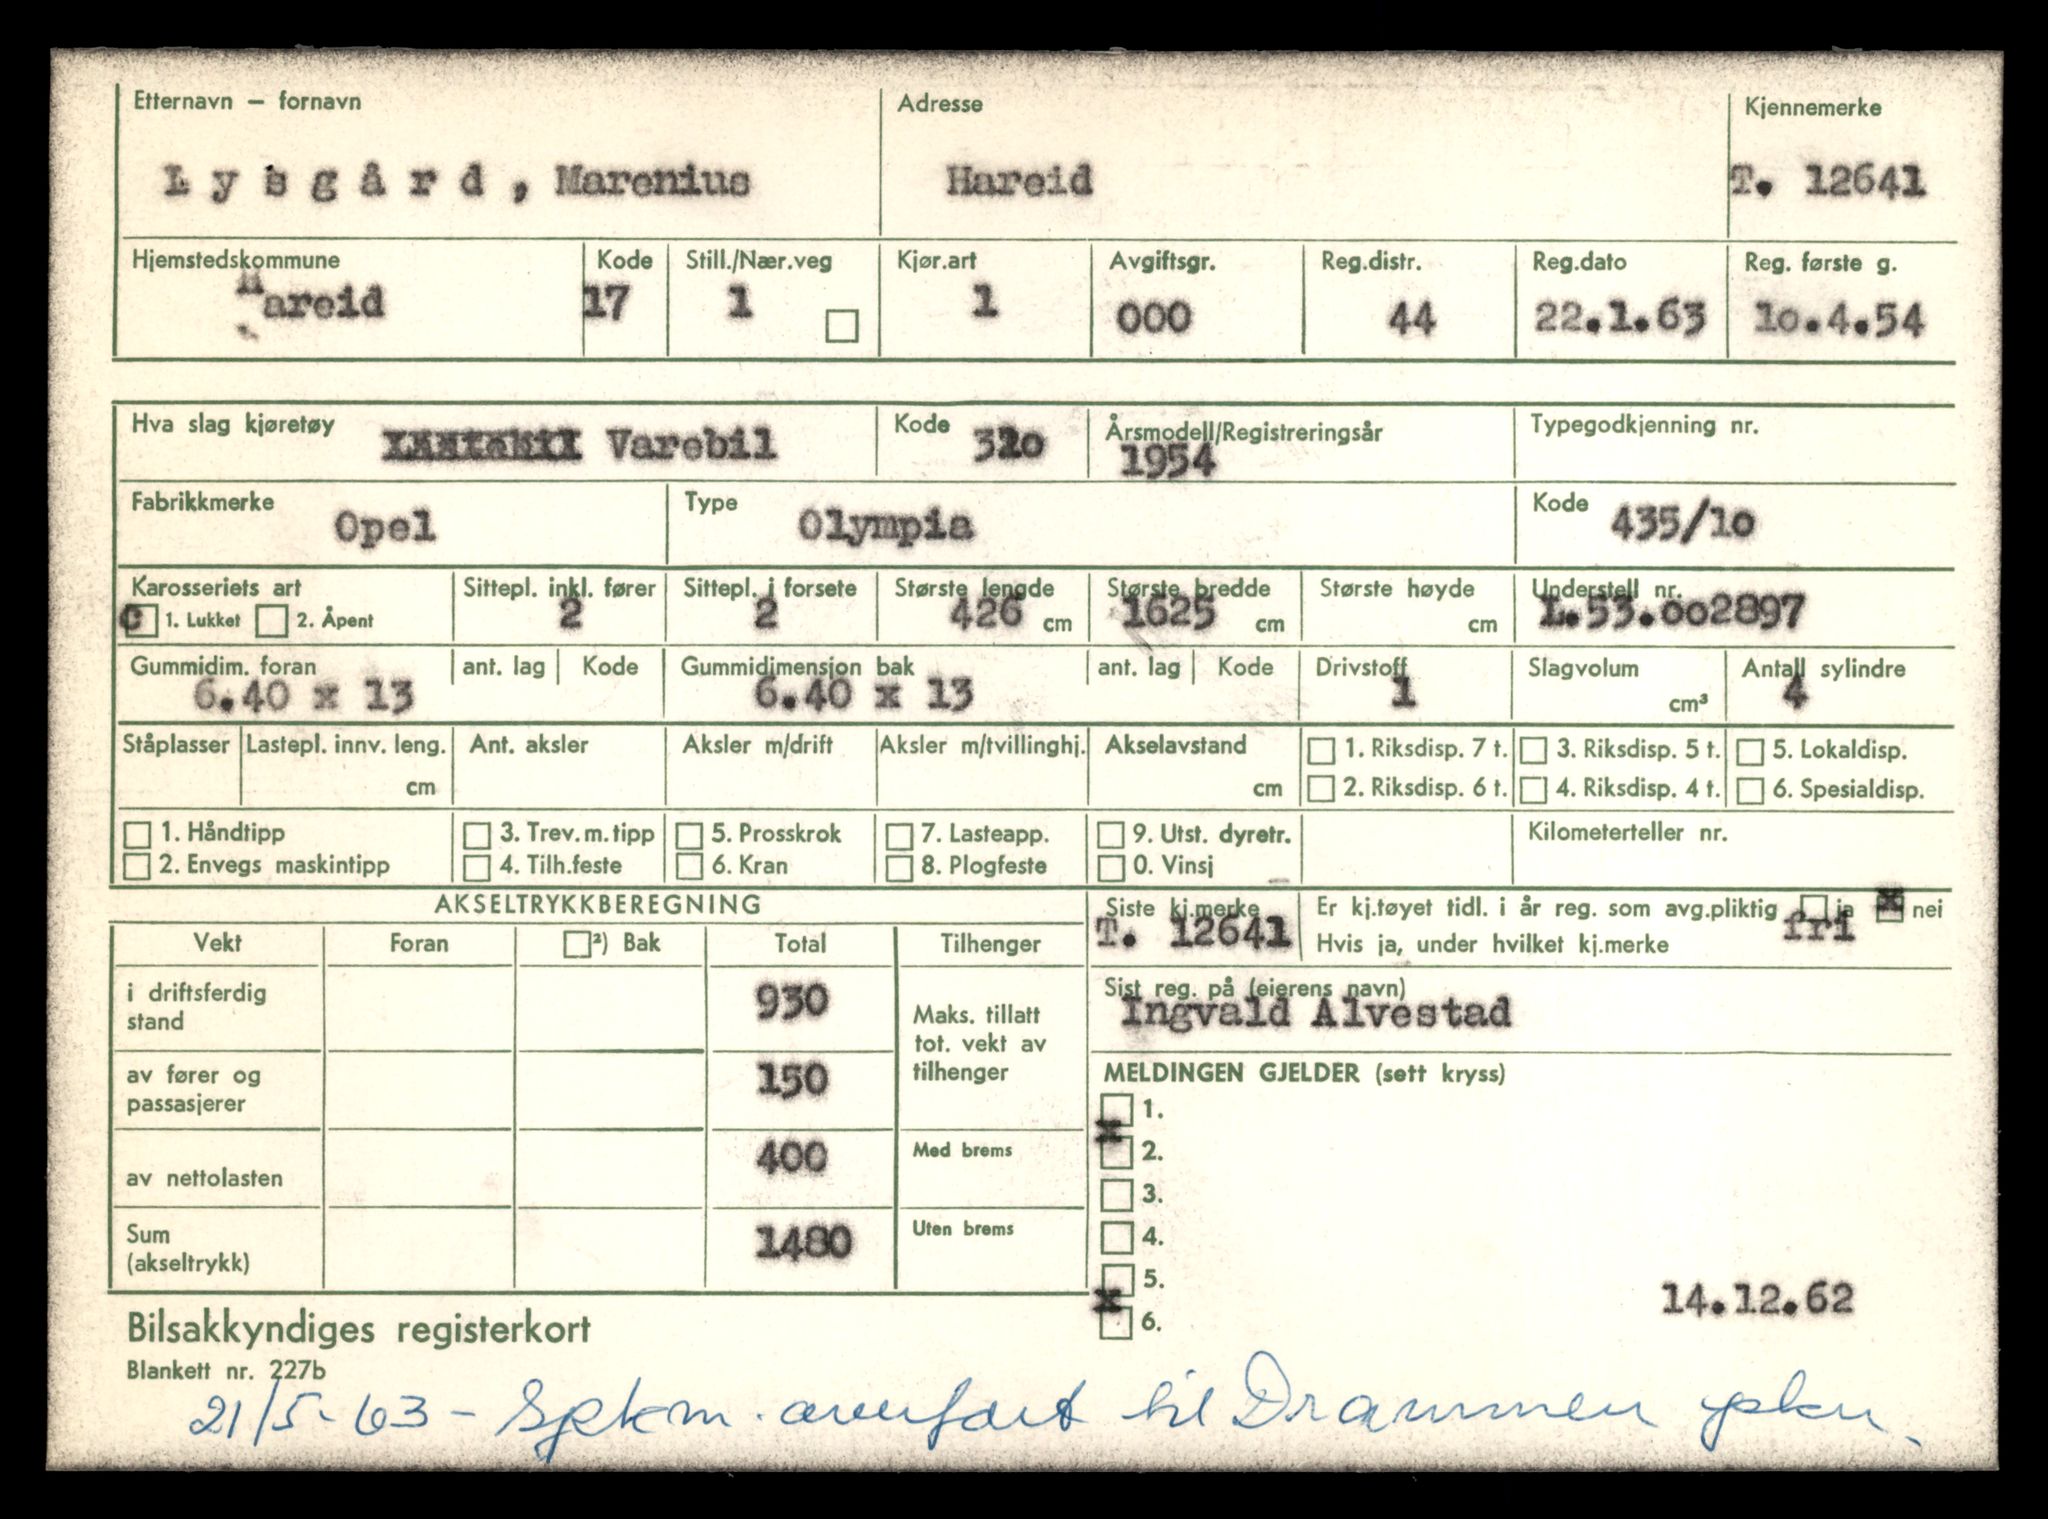 Etternavn – fornavn Adresse Kjennemerke
Lysgård, Marenius Hareid T. 12641
Hjemstedskommune Kode Still./Nær.veg Kjør.art Avgiftsgr. Reg.distr. Reg.dato Reg. første g.
Hareid 17 1 1 000 44 22.1.63 10.4.54
Hva slag kjøretøy Varebil Kode 320 Årsmodell/Registreringsår Typegodkjenning nr.
1954
Fabrikkmerke Type Kode
Opel Olympia 435/10
Karosseriets art Sittepl. inkl. fører Sittepl. i forsete Største lengde Største bredde Største høyde Understell nr.
c 1. Lukket 2. Åpent 2 2 426 cm 1625 cm cm L.53.002897
Gummidim. foran ant. lag Kode Gummidimensjon bak ant. lag Kode Drivstoff Slagvolum Antall sylindre
6.40 x 13 6.40 x 13 1 cm³ 4
Ståplasser Lastepl. innv. leng. Ant. aksler Aksler m/drift Aksler m/tvillinghj. Akselavstand 1. Riksdisp. 7 t. 3. Riksdisp. 5 t. 5. Lokaldisp.
cm cm 2. Riksdisp. 6 t. 4. Riksdisp. 4 t. 6. Spesialdisp.
1. Håndtipp 3. Trev.m.tipp 5. Prosskrok 7. Lasteapp. 9. Utst. dyretr. Kilometerteller nr.
2. Envegs maskintipp 4. Tilh.feste 6. Kran 8. Plogfeste 0. Vinsj
AKSELTRYKKBEREGNING
Siste kj.merke Er kj.tøyet tidl. i år reg. som avg.pliktig ja x nei
T. 12641 Hvis ja, under hvilket kj.merke fri
Vekt Foran ²) Bak Total Tilhenger
Sist reg. på (eierens navn)
Ingvald Alvestad
i driftsferdig
stand 930
Maks. tillatt
tot. vekt av
tilhenger
av fører og
passasjerer 150
av nettolasten 400 Med brems
Sum
(akseltrykk) 1480 Uten brems
MELDINGEN GJELDER (sett kryss)
1.
x 2.
3.
4.
5.
x 6.
14.12.62
Bilsakkyndiges registerkort
Blankett nr. 227b
21/5-63 - Spkm. overført til Drammen